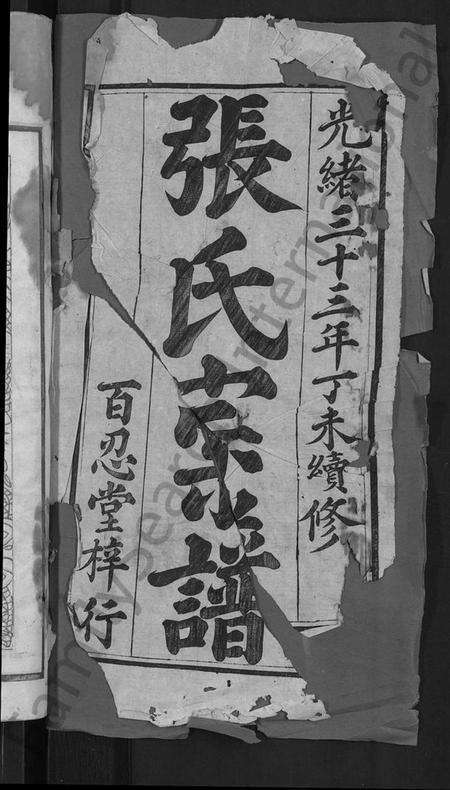 光緒三十三年丁未續修
張氏宗譜
百忍堂梓行
FamilySearch International